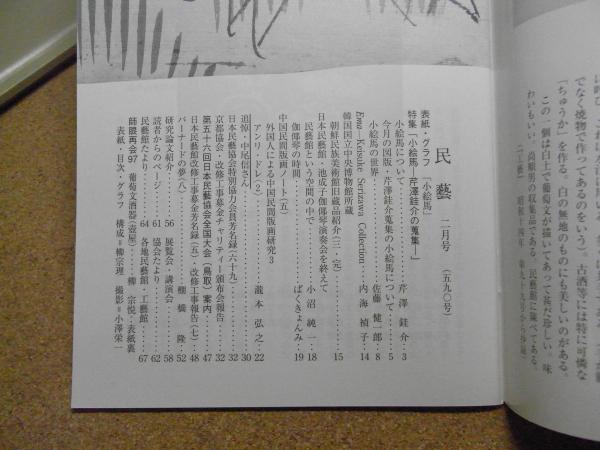 民藝 二月号（五九〇号）
表紙・グラフ「小絵馬」
特集「小絵馬―芹澤銈介の蒐集―」
小絵馬について‥‥芹澤銈介‥3
今月の図版・芹澤銈介蒐集の小絵馬について‥‥5
小絵馬の世界‥‥佐藤健一郎‥8
Ema—Keisuke Serizawa Collection‥‥内海禎子‥14
韓国国立中央博物館所蔵
朝鮮民族美術館旧蔵品紹介（三・完）‥‥15
日本民藝館・池成子伽倻琴演奏会を終えて
民藝館という空間の中で‥‥小沼純一‥18
伽倻琴の時間‥‥ぱくきょんみ‥19
中国民間版画ノート（五）
外国人による中国民間版画研究3
アンリ・ドレ（2）‥‥瀧本弘之‥22
追悼・中尾信さん‥‥30
日本民藝協会特別協力会員芳名録（六十九）‥‥32
京都協会・改修工事募金チャリティー頒布会報告‥‥32
第五十六回日本民藝協会全国大会（鳥取）案内‥‥47
日本民藝館改修工事募金芳名録（五）・改修工事報告（七）‥‥48
バーナードの夢（八）‥‥棚橋隆‥52
研究論文紹介‥‥56 展覧会・講演会‥‥58
読者からのページ‥‥61 協会たより‥‥62
民藝館たより‥‥64 各地民藝館・工藝館‥‥67
師眼再会97 葡萄文酒器（壺屋）‥‥柳宗悦・表紙裏
表紙・目次・グラフ 構成＝柳宗理 撮影＝小澤栄一
でなく焼物で作ってあるのをいう）。古酒等には特に可憐な
「ちゅうか」を作る。白の無地のものにも美しいのがある。
この一個は白土で葡萄文が描いてあって甚だ珍しい。味
わいもいい。尚順男の収集品である。民藝館に陳べてある。